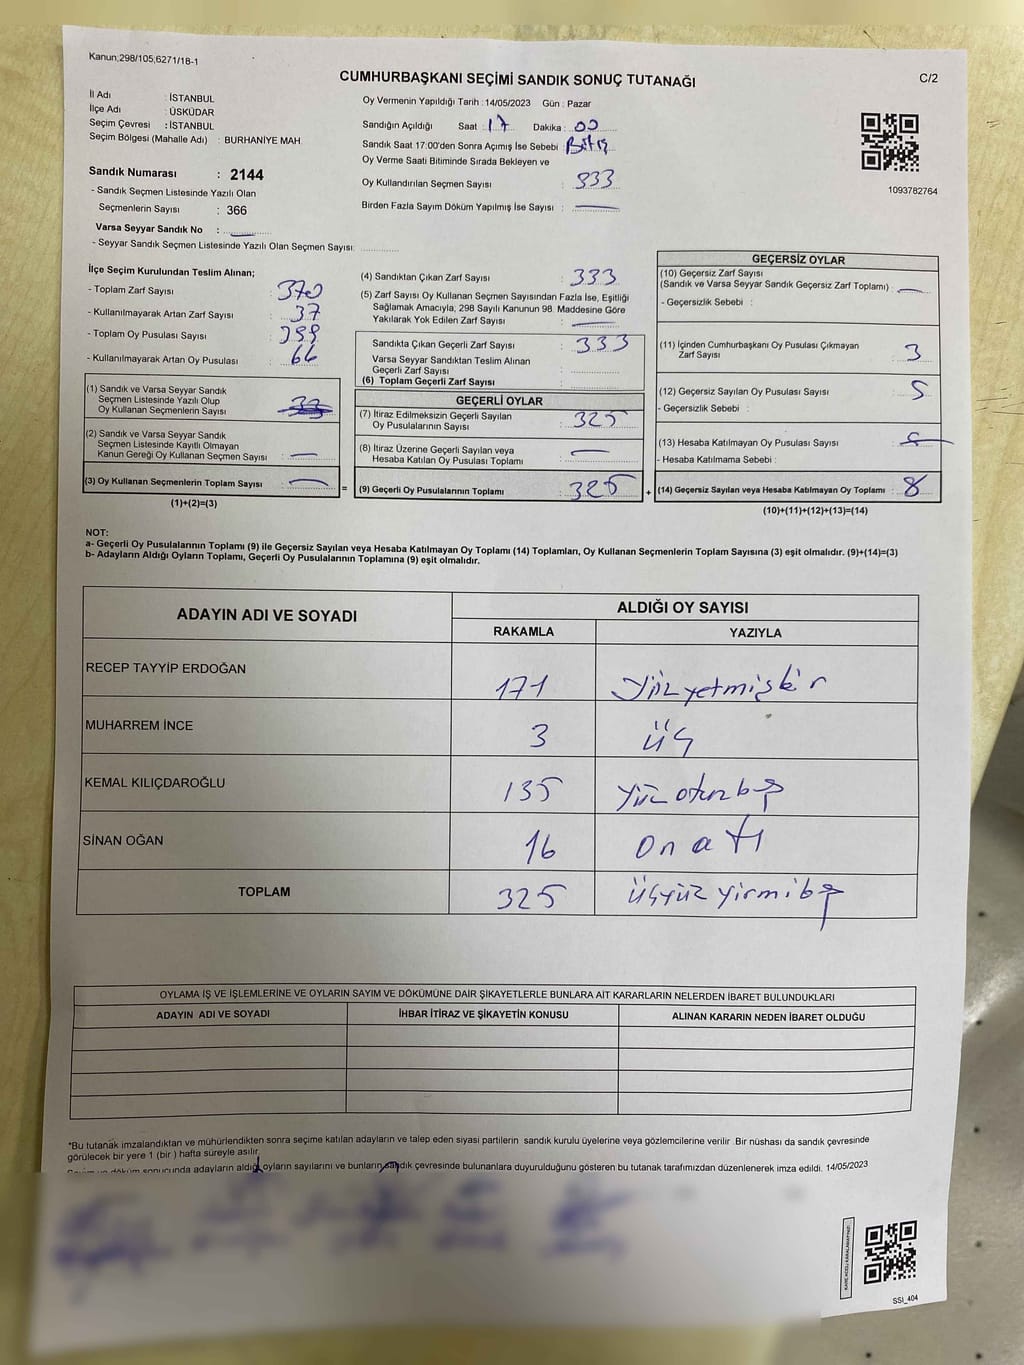 Kanun;298/105,6271/18-1
C/2
CUMHURBAŞKANI SEÇİMİ SANDIK SONUÇ TUTANAĞI
İl Adı : İSTANBUL
İlçe Adı : ÜSKÜDAR
Seçim Çevresi : İSTANBUL
Seçim Bölgesi (Mahalle Adı) : BURHANİYE MAH
Oy Vermenin Yapıldığı Tarih : 14/05/2023 Gün : Pazar
Sandığın Açıldığı Saat : 17 Dakika : 00
Sandık Saat 17:00'den Sonra Açımış İse Sebebi : Bitiş
Oy Verme Saati Bitiminde Sırada Bekleyen ve
Oy Kullandırılan Seçmen Sayısı : 333
Birden Fazla Sayım Döküm Yapılmış İse Sayısı : —
1093782764
Sandık Numarası : 2144
- Sandık Seçmen Listesinde Yazılı Olan
Seçmenlerin Sayısı : 366
Varsa Seyyar Sandık No : —
- Seyyar Sandık Seçmen Listesinde Yazılı Olan Seçmen Sayısı:
İlçe Seçim Kurulundan Teslim Alınan;
- Toplam Zarf Sayısı : 370
- Kullanılmayarak Artan Zarf Sayısı : 37
- Toplam Oy Pusulası Sayısı : 399
- Kullanılmayarak Artan Oy Pusulası : 66
(1) Sandık ve Varsa Seyyar Sandık
Seçmen Listesinde Yazılı Olup
Oy Kullanan Seçmenlerin Sayısı :
(2) Sandık ve Varsa Seyyar Sandık
Seçmen Listesinde Kayıtlı Olmayan
Kanun Gereği Oy Kullanan Seçmen Sayısı : —
(3) Oy Kullanan Seçmenlerin Toplam Sayısı : —
(1)+(2)=(3)
=
(4) Sandıktan Çıkan Zarf Sayısı : 333
(5) Zarf Sayısı Oy Kullanan Seçmen Sayısından Fazla İse, Eşitliği
Sağlamak Amacıyla; 298 Sayılı Kanunun 98. Maddesine Göre
Yakılarak Yok Edilen Zarf Sayısı : —
Sandıkta Çıkan Geçerli Zarf Sayısı : 333
Varsa Seyyar Sandıktan Teslim Alınan
Geçerli Zarf Sayısı :
(6) Toplam Geçerli Zarf Sayısı :
GEÇERLİ OYLAR
(7) İtiraz Edilmeksizin Geçerli Sayılan
Oy Pusulalarının Sayısı : 325
(8) İtiraz Üzerine Geçerli Sayılan veya
Hesaba Katılan Oy Pusulası Toplamı : —
(9) Geçerli Oy Pusulalarının Toplamı : 325
+
GEÇERSİZ OYLAR
(10) Geçersiz Zarf Sayısı
(Sandık ve Varsa Seyyar Sandık Geçersiz Zarf Toplamı) : —
- Geçersizlik Sebebi :
(11) İçinden Cumhurbaşkanı Oy Pusulası Çıkmayan
Zarf Sayısı : 3
(12) Geçersiz Sayılan Oy Pusulası Sayısı : 5
- Geçersizlik Sebebi :
(13) Hesaba Katılmayan Oy Pusulası Sayısı :
- Hesaba Katılmama Sebebi :
(14) Geçersiz Sayılan veya Hesaba Katılmayan Oy Toplamı : 8
(10)+(11)+(12)+(13)=(14)
NOT:
a- Geçerli Oy Pusulalarının Toplamı (9) ile Geçersiz Sayılan veya Hesaba Katılmayan Oy Toplamı (14) Toplamları, Oy Kullanan Seçmenlerin Toplam Sayısına (3) eşit olmalıdır. (9)+(14)=(3)
b- Adayların Aldığı Oyların Toplamı, Geçerli Oy Pusulalarının Toplamına (9) eşit olmalıdır.
ADAYIN ADI VE SOYADI
ALDIĞI OY SAYISI
RAKAMLA YAZIYLA
RECEP TAYYİP ERDOĞAN 171 yüz yetmişbir
MUHARREM İNCE 3 üç
KEMAL KILIÇDAROĞLU 135 yüz otuz beş
SİNAN OĞAN 16 on altı
TOPLAM 325 üçyüz yirmibeş
OYLAMA İŞ VE İŞLEMLERİNE VE OYLARIN SAYIM VE DÖKÜMÜNE DAİR ŞİKAYETLERLE BUNLARA AİT KARARLARIN NELERDEN İBARET BULUNDUKLARI
ADAYIN ADI VE SOYADI İHBAR İTİRAZ VE ŞİKAYETİN KONUSU ALINAN KARARIN NEDEN İBARET OLDUĞU
*Bu tutanak imzalandıktan ve mühürlendikten sonra seçime katılan adayların ve talep eden siyasi partilerin sandık kurulu üyelerine veya gözlemcilerine verilir. Bir nüshası da sandık çevresinde
görülecek bir yere 1 (bir) hafta süreyle asılır.
Sayım ve döküm sonucunda adayların aldığı oyların sayılarını ve bunların sandık çevresinde bulunanlara duyurulduğunu gösteren bu tutanak tarafımızdan düzenlenerek imza edildi. 14/05/2023
SSI_404